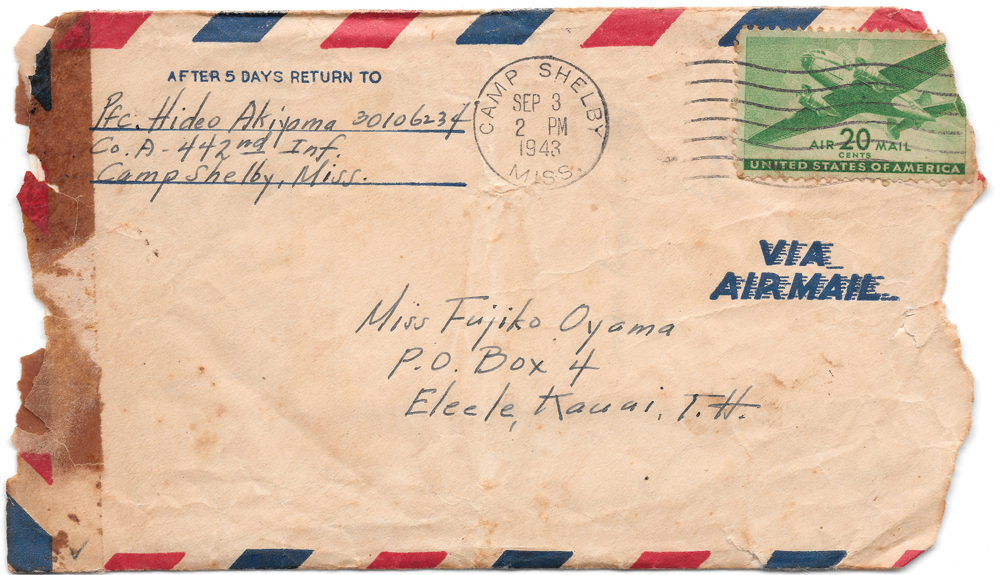 AFTER 5 DAYS RETURN TO
Pfc. Hideo Akiyama 30106234
Co. A - 442nd Inf.
Camp Shelby, Miss.
CAMP SHELBY
SEP 3
2 PM
1943
MISS.
AIR 20 MAIL
CENTS
UNITED STATES OF AMERICA
VIA
AIR MAIL
Miss Fujiko Oyama
P.O. Box 4
Eleele, Kauai, T.H.